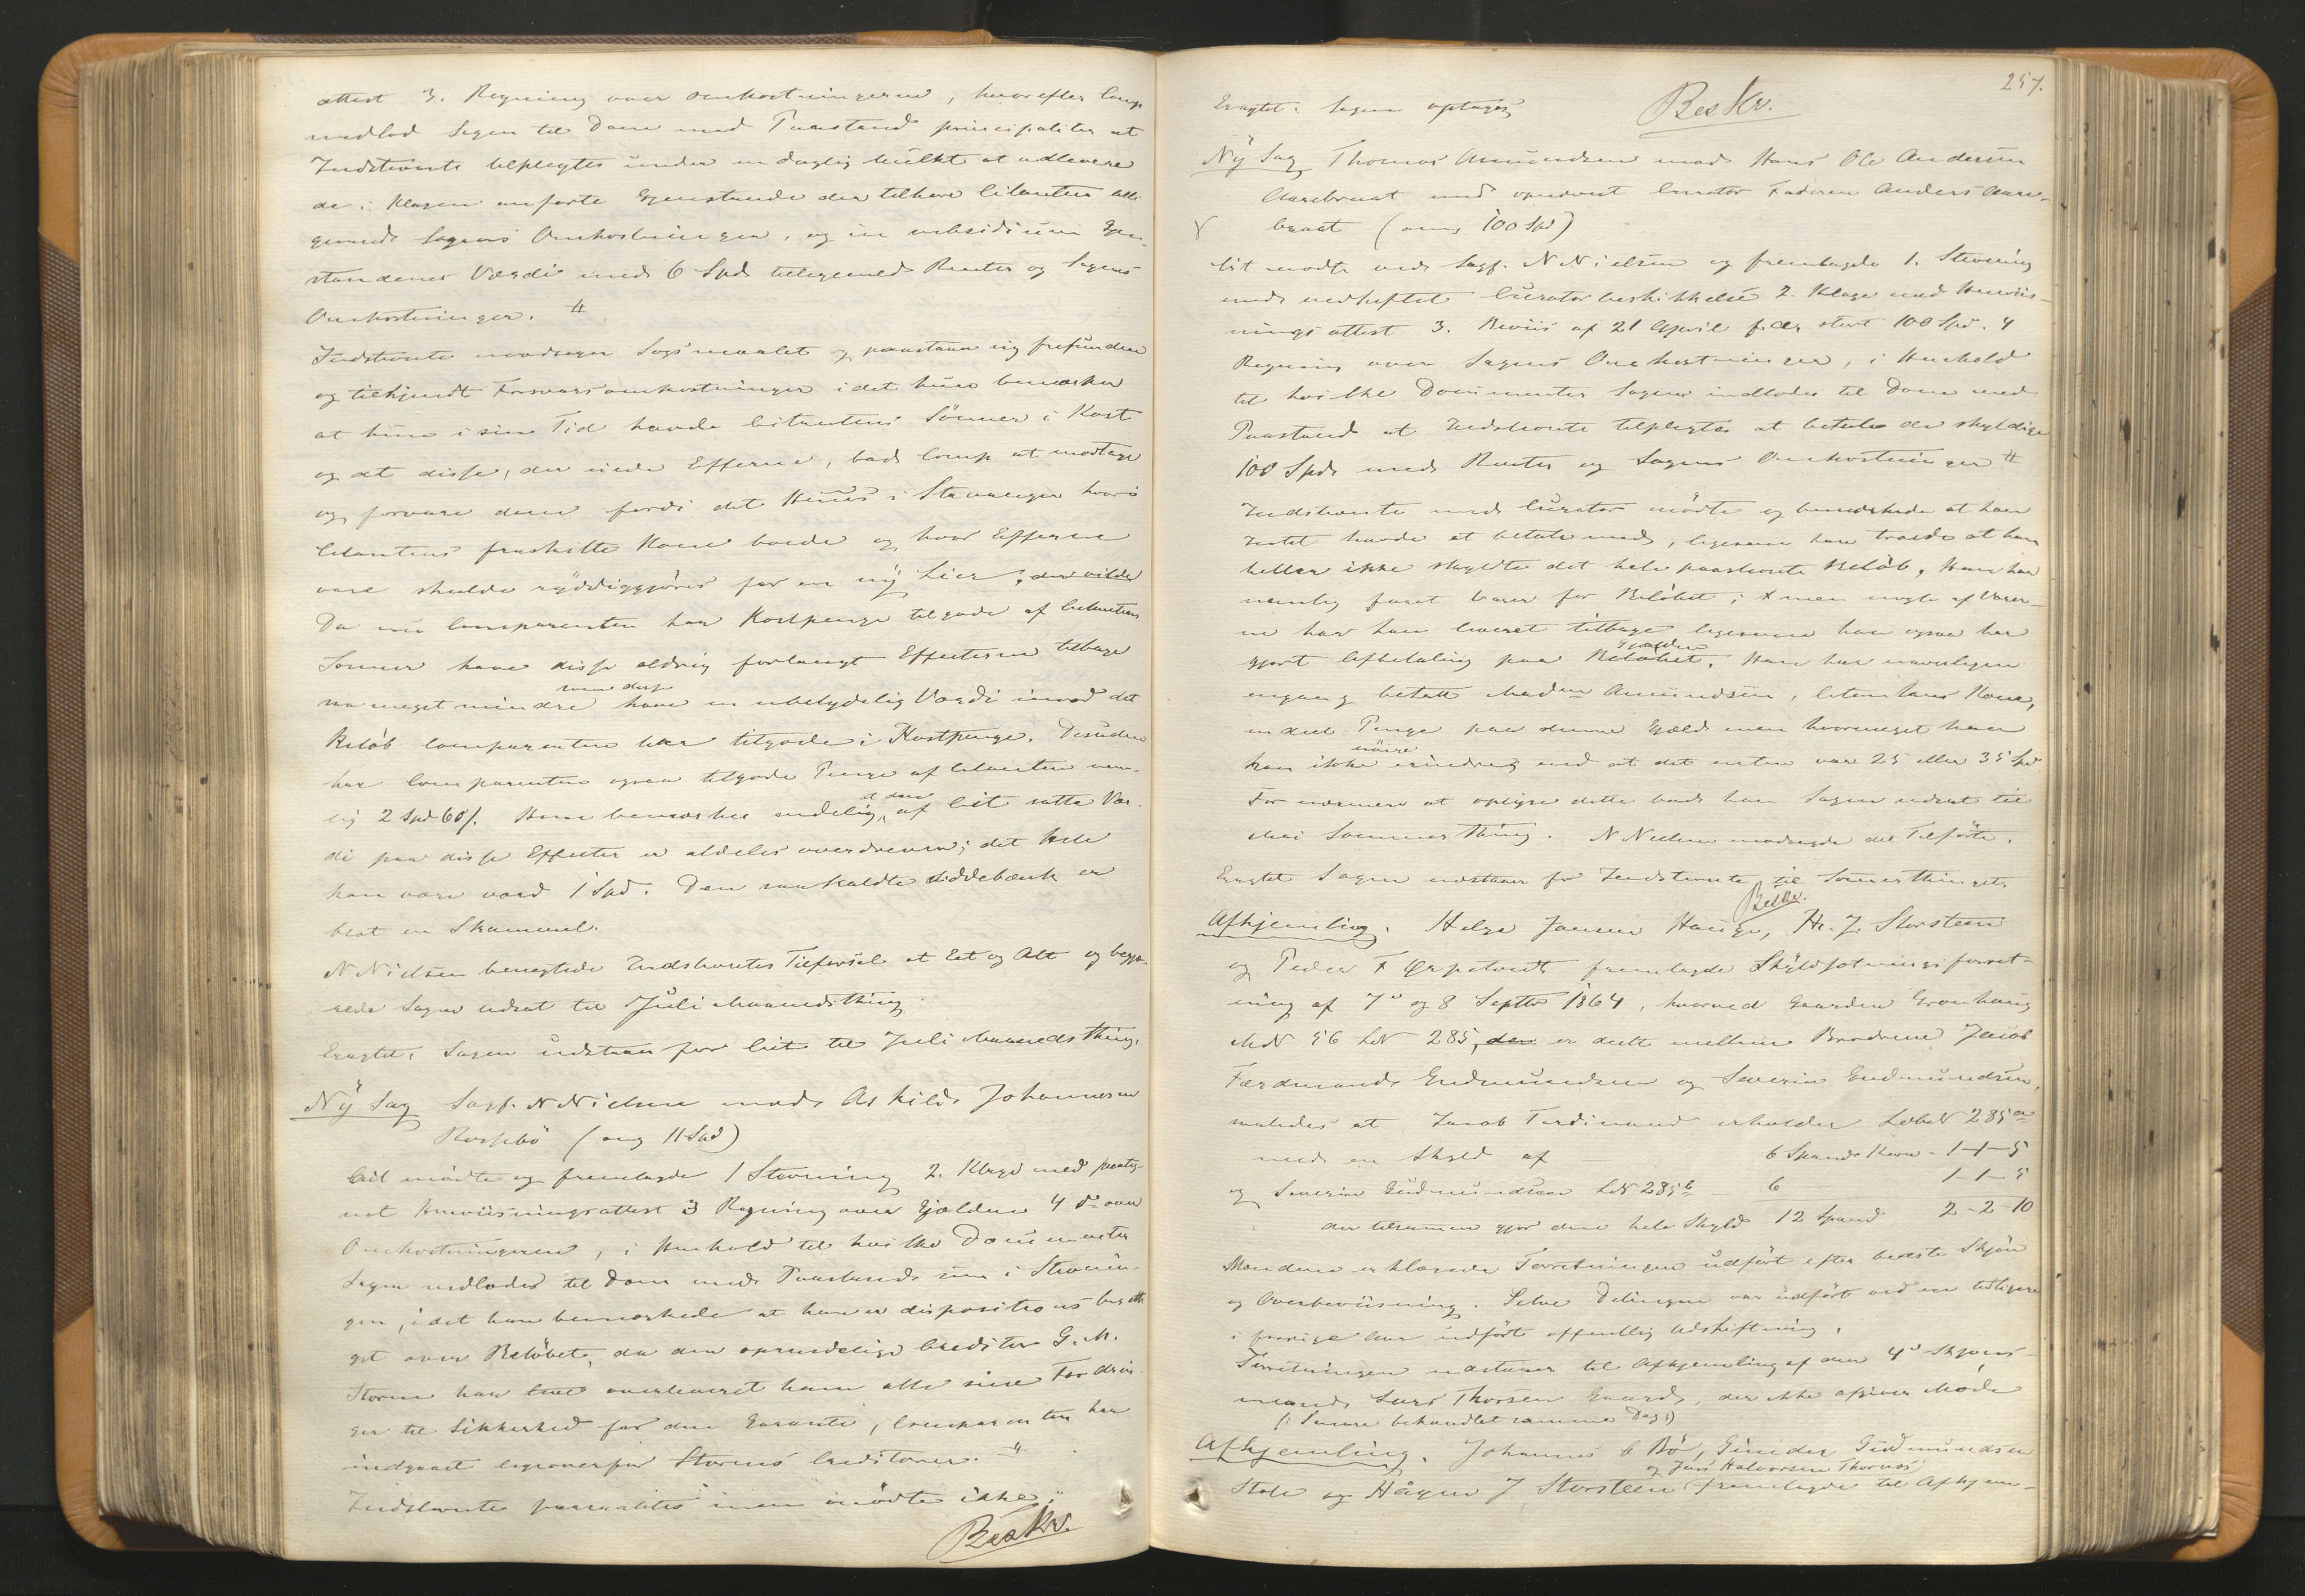 attest 3. Regning over Omkostningerne, hvorefter Comp
indlod Sagen til Dom med Paastand principaliter at
Indstevnte tilpligtes under en daglig Mulkt at udlevere
de i Klagen anførte Gjenstande der tilhøre Citanten alli
gemed Sagens Omkostninger, og in subsidium Gjen-
standenes Værdi med 6 Spd tilligemed Renter og Sagens
Omkostninger. #
Indstevnte modsagde Søgsmaalet og paastaar sig frifunden
og tilkjendt Forsvarsomkostninger idet hun bemærker
at hun i sin Tid havde Citantens Sønner i Kost
og at disse, der eiede Effecterne, bad Comp at modtage
og forvare dem fordi det Huus i Stavanger hvori
Citantens fraskilte Kone boede og hvor Effecterne
vare skulde ryddiggjøres for en ny Leier, der vilde
Da nu Comparenten har Kostpenge tilgode af Citantens
Sønner have disse aldrig forlangt Effecterne tilbage
saa meget mindre som disse have en ubetydelig Værdi imod det
Beløb Comparenten har tilgode i Kostpenge. Desuden
har Comparenten ogsaa tilgode Penge af Citanten nem-
lig 2 Spd 60 ß. Hun bemærker endelig at den af Cit satte Vær-
di paa disse Effecter er aldeles overdreven; det Hele
kan være værd 1 Spd. Den saakaldte Siddebænk er
blot en Skammel.
N Nielsen benegtede Indstevntes Tilførsel et Eet og Alt og begjæ-
rede Sagen udsat til Juli Maanedsthing.
Eragtet: Sagen udstaar for Cit til Juli Maanedsthing.
Ny Sag Sagf. N Nielsen mod Askild Johannesen
Rossebø (ang 11 Spd)
Cit mødte og fremlagde 1 Stevning 2. Klage med
net Henviisningsattest 3 Regning over Gjælden 4 do over
Omkostningerne, i Henhold til hvilke Documenter
Sagen indlodes til Dom med Paastand som i Stevnin-
gen, idet han bemærkede at han er dispositions beretti
get over Beløbet, da den oprindelige Creditor G. M.
Storm har overleveret ham alle sine Fordrin-
ger til Sikkerhed for den Garanti, Comparenten har
indgaaet ligeoverfor Storms Creditorer. #
Indstevnte paaraabtes men mødte ikke.
Beskr.
257.
Eragtet: Sagen optages
Beskr.
Ny Sag Thomas Amundsen mod Hans Ole Andersen
Aarebrot med opnævnt Curator Faderen Anders Aare-
brot (ang 100 Spd)
Cit mødte ved Sagf. N Nielsen og fremlagde 1. Stevning
med vedheftet Curatorbeskikkelse 2. Klage med Henviis-
ningsattest 3. Beviis af 21 April f. A. stort 100 Spd. 4
Regning over Sagens Omkostninger, i Henhold
til hvilke Documenter Sagen indlodes til Dom med
Paastand at Indstevnte tilpligtes at betale de skyldige
100 Spd med Renter og Sagens Omkostninger #
Indstevnte med Curator mødte og bemærkede at han
Intet havde at betale med, ligesom han troede at han
heller ikke skyldte det hele paastevnte Beløb. Han har
nemlig faaet Varer for Beløbet; men nogle af Varer-
ne har han leveret tilbage ligesom han ogsaa har
gjort Afbetaling paa Beløbet Gjælden. Han har navnligen
engang betalt Madm Amundsen, Citantens Kone,
en deel Penge paa denne Gjæld men hvormeget han
kan ikke nøiere erindre end at det enten var 25 eller 35 Spd
For nærmere at oplyse dette bad han Sagen udsat til
Mai Sommerthing. N Nielsen modsagde det Tilførte.
Eragtet Sagen udstaar for Indstevnte til Sommerthinget.
Beskr.
Afhjemling. Helge Jansen Hauge, Hr. J. Storsteen
og Peder F fremlagde Skyldsætningsforret-
ning af 7de og 8 Septbr 1864, hvorved Gaarden Grønhaug
MN 56 LN 285, den er deelt mellem Brødrene Jacob
Ferdinand Gudmundsen og Severin Gudmundsen,
saaledes at Jacob Ferdinand erholder LøbeN 285 a
med en Skyld af 6 Spands Korn - 1-1-5
og Severin Gudmundsen LN 285 b 6 1-1-5
der tilsammen gjør den hele Skyld 12 Spand 2-2-10
Mændene erklærede Forretningen udført efter bedste Skjøn
og Overbeviisning. Selve Delingen var udført ved en tidligere
i forrige Aar udført offentlig Udskiftning.
Forretningen udstaar til Afhjemling af den 4de Skjøns-
mand Lars Thorsen Gaard, der ikke afgiver Møde
(: Senere behandlet samme Dag :)
Afhjemling. Johannes Bø, Gunder Gudmundsen
og Jens Halvorsen Thornæs
Stole og Haagen J Storsteen fremlagde til Afhjem-